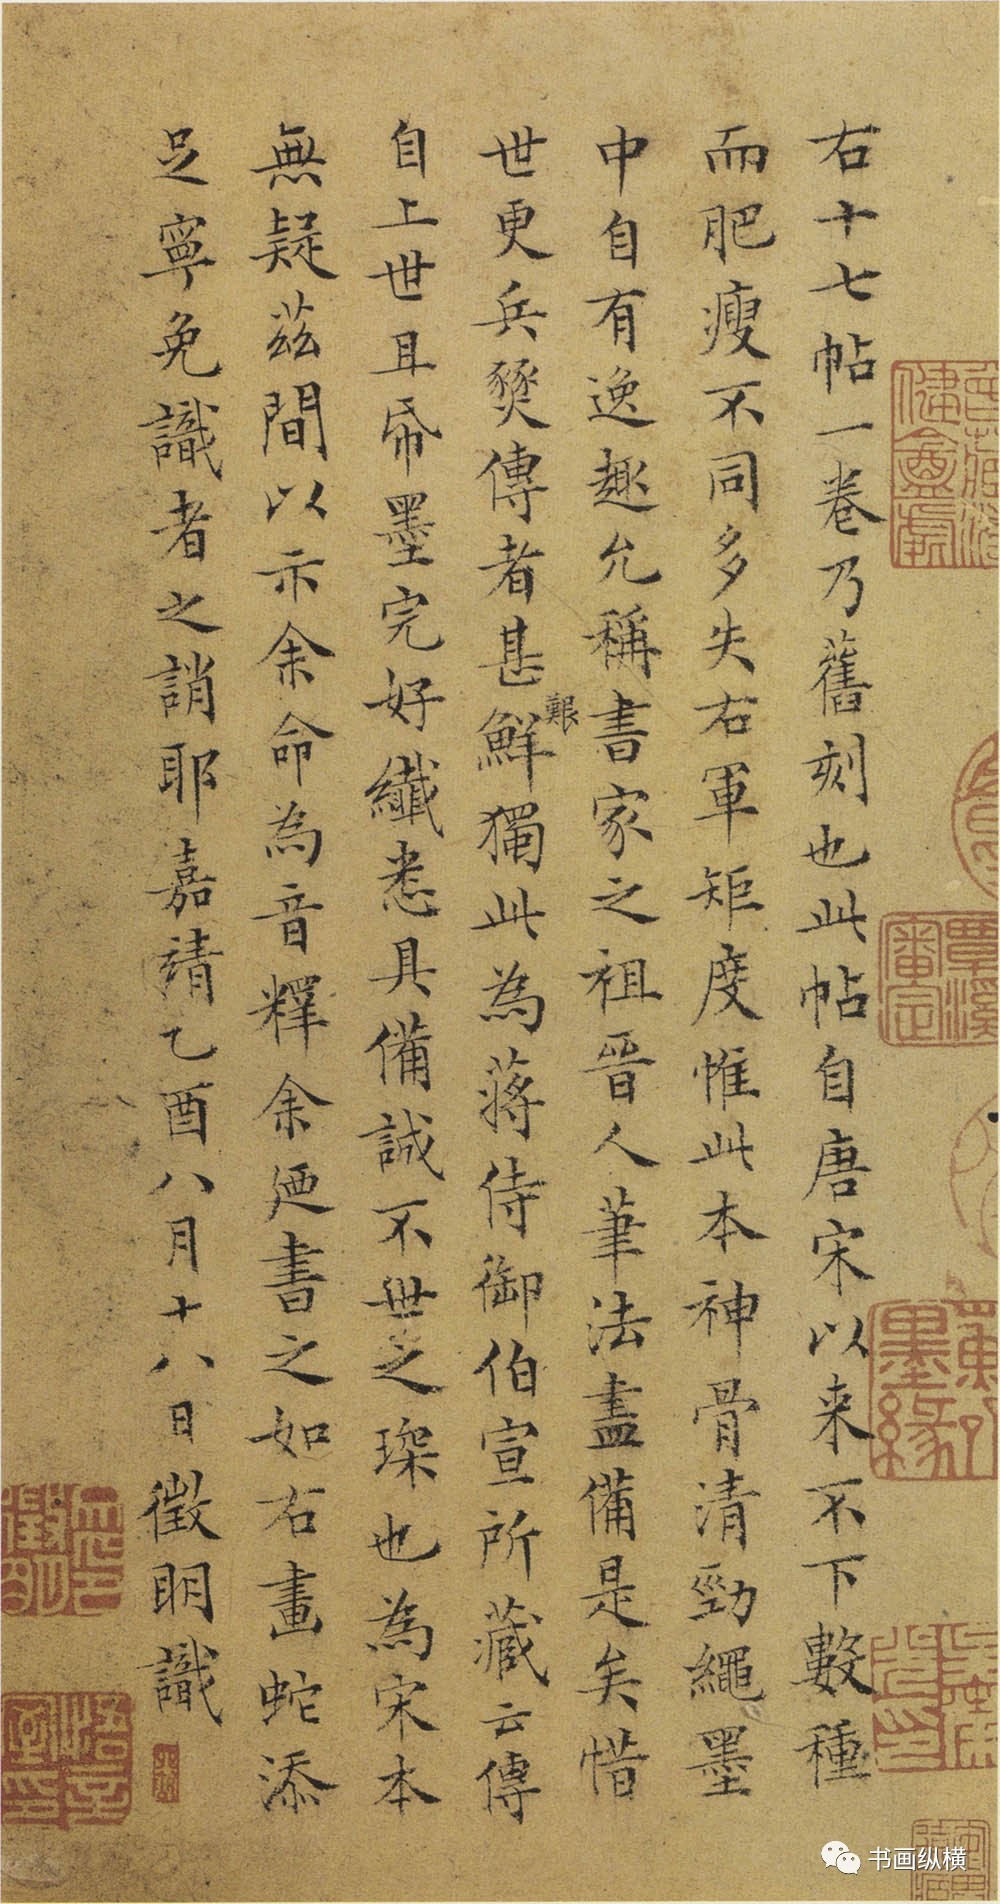 右十七帖一卷乃舊刻也此帖自唐宋以来不下數種
而肥瘦不同多失右軍矩度惟此本神骨清勁繩墨
中自有逸趣允稱書家之祖晉人筆法盡備是矣惜
世更兵燹傳者甚鮮獨此為蔣侍御伯宣所藏云傳
艱
自上世且帋墨完好纖悉具備誠不世之琛也為宋本
無疑茲間以示余命為音釋余廼書之如右畫蛇添
足寧免識者之誚耶嘉靖乙酉八月十八日徵明識
覃溪審定
墨緣
徵明
悟言室印
书画纵横